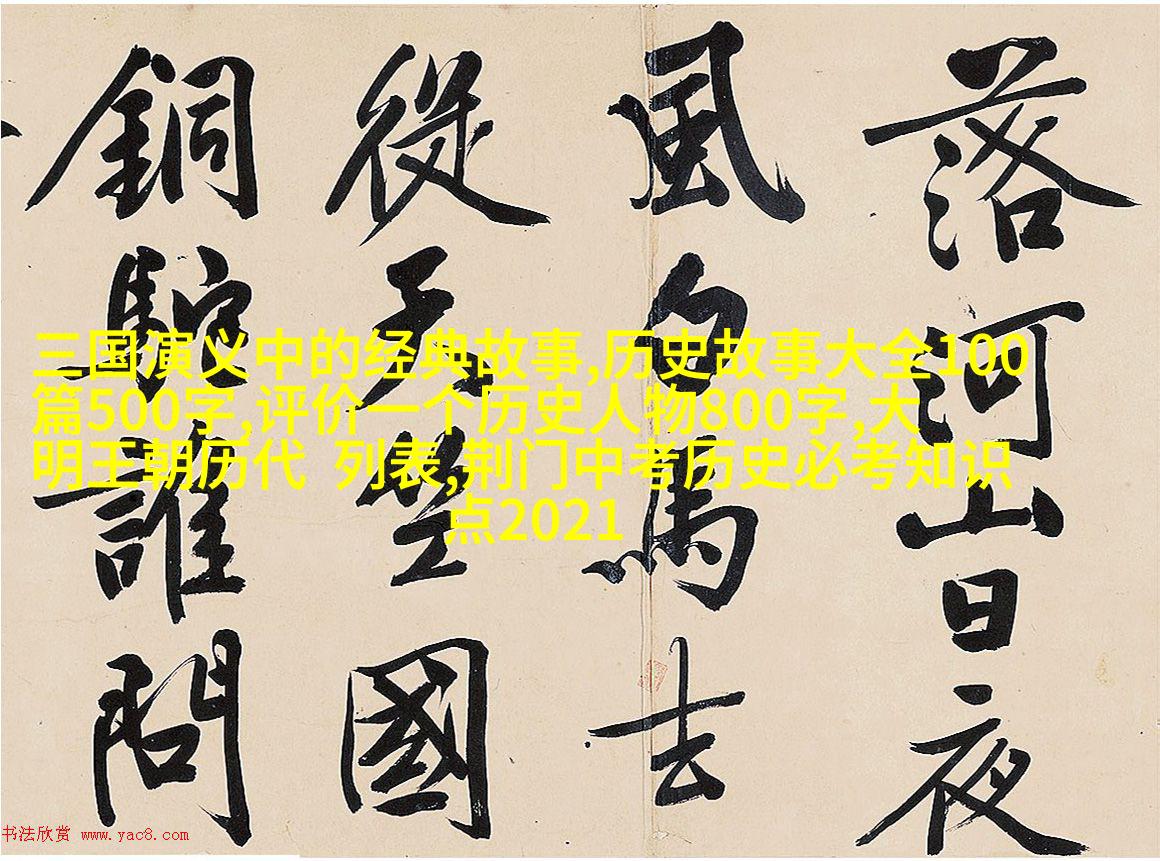 落河山日夜
風白馬去
從天竺國
銅駝誰問
三国演义中的经典故事,历史故事大全100
篇500字,评价一个历史人物800字,大
明王朝历代 列表,荆门中考历史必考知识
点2021
书法欣赏 www.yac8.com